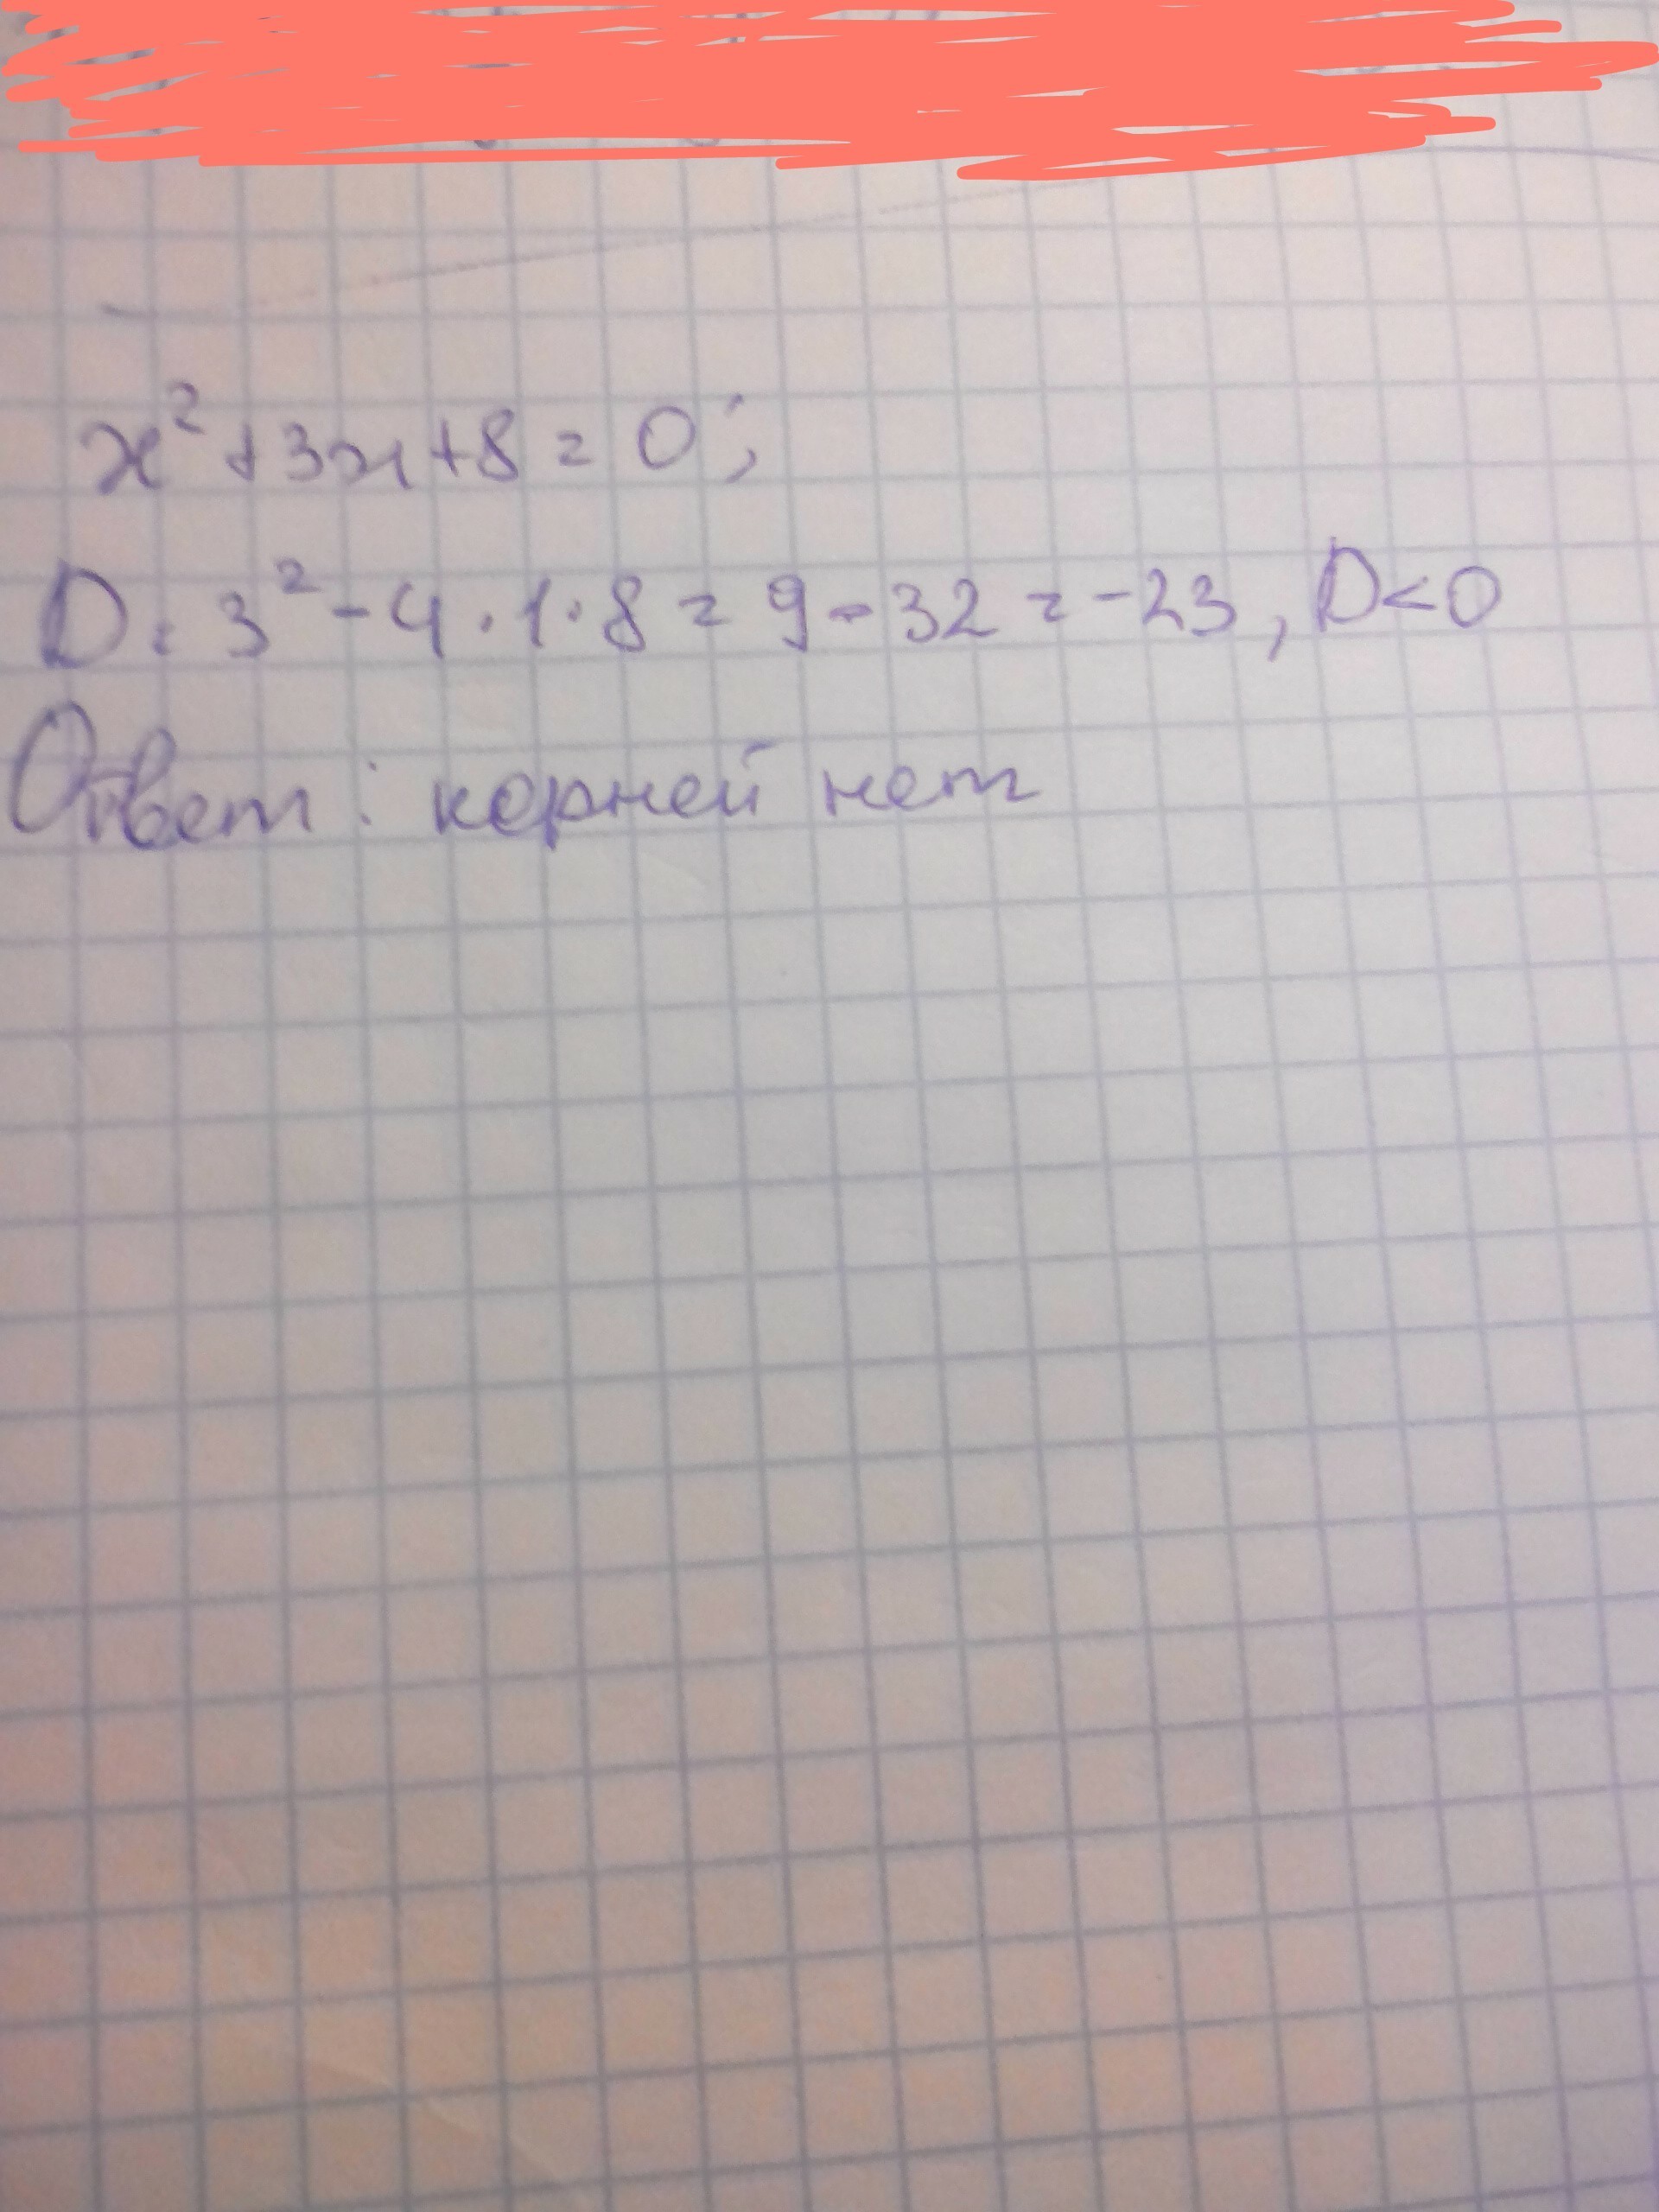 x² + 3x + 8 = 0;
D = 3² - 4 · 1 · 8 = 9 - 32 = -23, D < 0
Ответ: корней нет